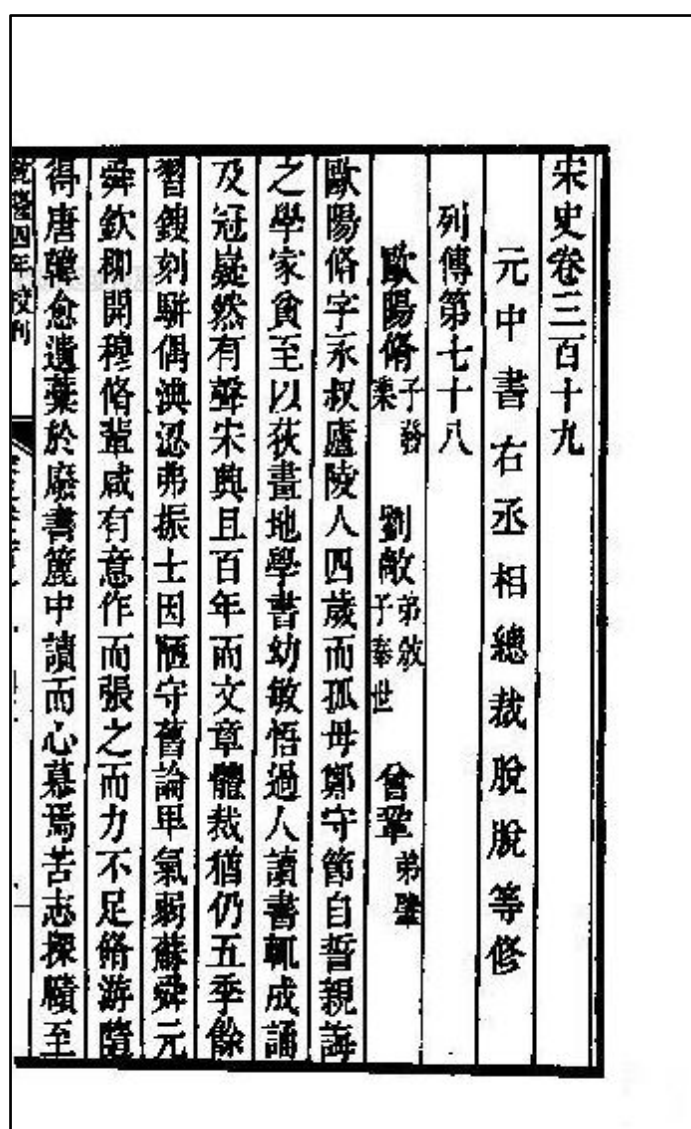 宋史卷三百十九
元中書右丞相總裁脫脫等修
列傳第七十八
歐陽脩子發棐 劉敞弟攽子奉世 曾鞏弟肇
歐陽脩字永叔廬陵人四歲而孤母鄭守節自誓親誨
之學家貧至以荻畫地學書幼敏悟過人讀書輒成誦
及冠嶷然有聲宋興且百年而文章體裁猶仍五季餘
習鎪刻駢偶淟涊弗振士因陋守舊論卑氣弱蘇舜元
舜欽柳開穆脩輩咸有意作而張之而力不足脩游隨
得唐韓愈遺藁於廢書簏中讀而心慕焉苦志探賾至
乾隆四年校刊